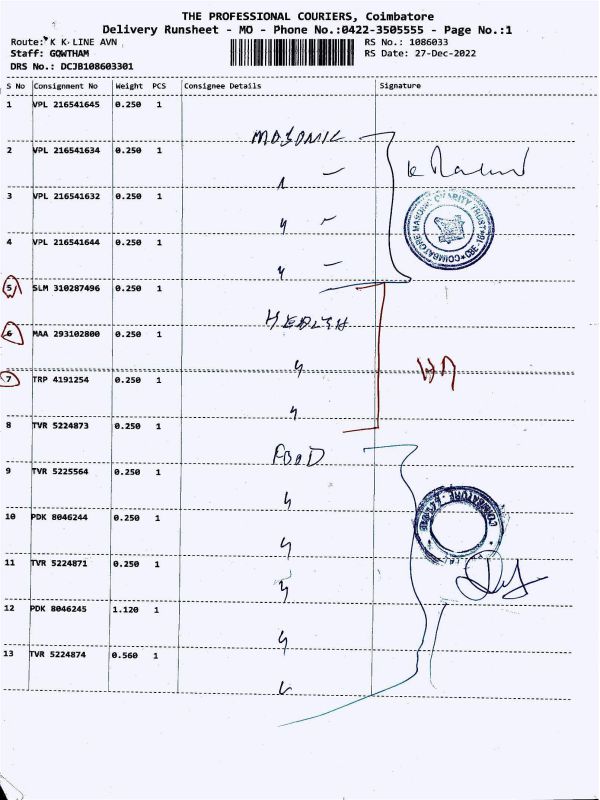 THE PROFESSIONAL COURIERS, Coimbatore
Delivery Runsheet - MO - Phone No.:0422-3505555 - Page No.:1
Route: K K LINE AVN
Staff: GOWTHAM
DRS No.: DCJB108603301
RS No.: 1086033
RS Date: 27-Dec-2022
S No Consignment No Weight PCS Consignee Details Signature
1 VPL 216541645 0.250 1 MASONIC
2 VPL 216541634 0.250 1
3 VPL 216541632 0.250 1
4 VPL 216541644 0.250 1
COIMBATORE MASONIC CHARITY TRUST
5 SLM 310287496 0.250 1 HEALTH
6 MAA 293102800 0.250 1
7 TRP 4191254 0.250 1
8 TVR 5224873 0.250 1
9 TVR 5225564 0.250 1
10 PDK 8046244 0.250 1
COIMBATORE
11 TVR 5224871 0.250 1
12 PDK 8046245 1.120 1
13 TVR 5224874 0.560 1